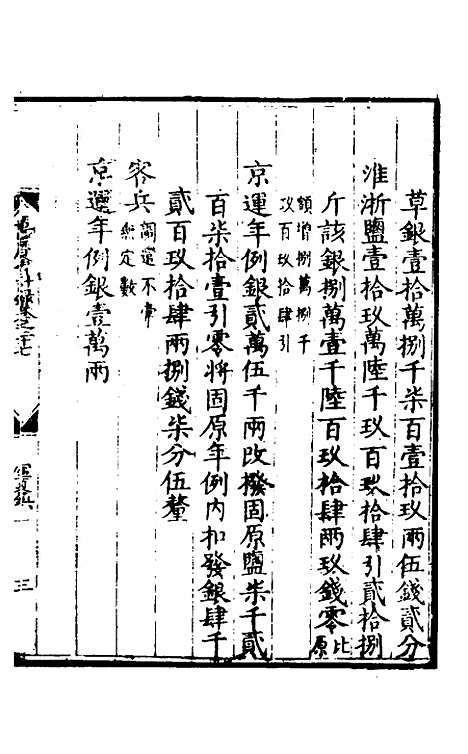 草銀壹十萬捌千柒百壹拾玖兩伍錢貳分
淮浙鹽壹十玖萬陸千玖百玖拾肆引貳拾捌
斤該銀捌萬壹千陸百玖拾肆兩玖錢零比原
額增捌萬捌千
玖百玖拾肆引
京運年例銀貳萬伍千兩改撥固原鹽柒千貳
百柒拾壹引零將固原年例內扣發銀肆千
貳百玖拾肆兩捌錢柒分伍釐
客兵調遣不常
無定數
京運年例銀壹萬兩
卷之二十七
三